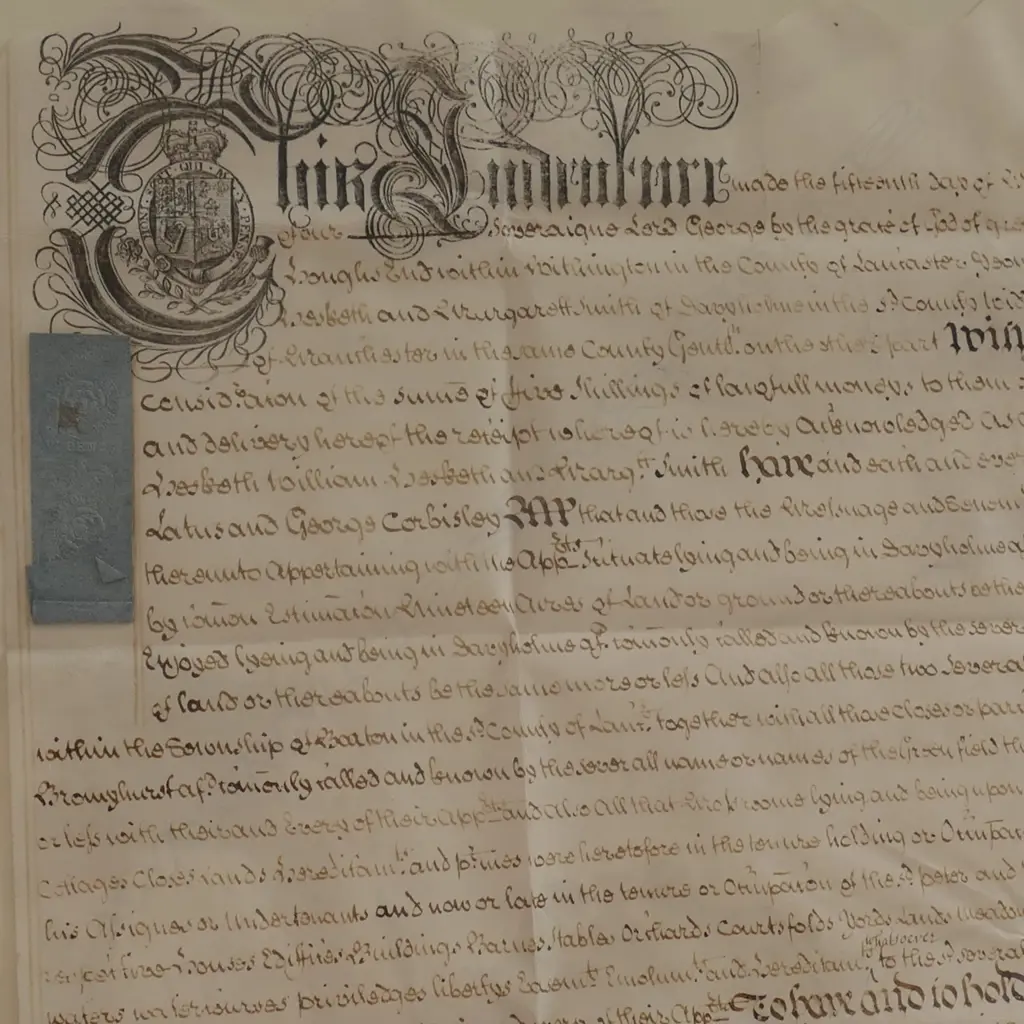 This Indenture made the fifteenth day of
of our Soveraigne Lord George by the grace of God of
Houghs End within Withington in the County of Lancaster
Hesketh and Margarett Smith of Davyholme in the sd County
of Manchester in the same County Gentlm. on the other part
consideraion of the sume of five Shillings of lawfull moneys to them
and delivery hereof the receipt whereof is hereby Acknowledged
Hesketh William Hesketh and Margtt. Smith have and each and
Latus and George Corbisley All that and those the Messuage and
thereunto Appertaining with the Appts Scituate lying and being in Davyholme
by comon Estimacion Nineteen Acres of Land or ground or thereabouts be the
Enjoyed lyeing and being in Davyholme afd. comonly called and known by the
of land or thereabouts be the same more or less And also all those two several
within the Township of Barton in the sd County of Lancr. together with all those closes or
Bromyhurst afd. comonly called and known by the severall name or names of the Green field
or less with their and Every of their Appts and also All that room lying and being upon
Cottages Closes Lands Hereditamts. and pmises were heretofore in the tenure holding or
his Assignes or Undertenants and now or late in the tenure or Occupacion of the sd Peter and
Houses Edifices Buildings Barnes Stables Orchards Courts folds Yords Lands
whatsoever
waters watercourses priviledges libertys Easemts. Emolumts. and Hereditamts. to the sd
of their Appts To have and to hold